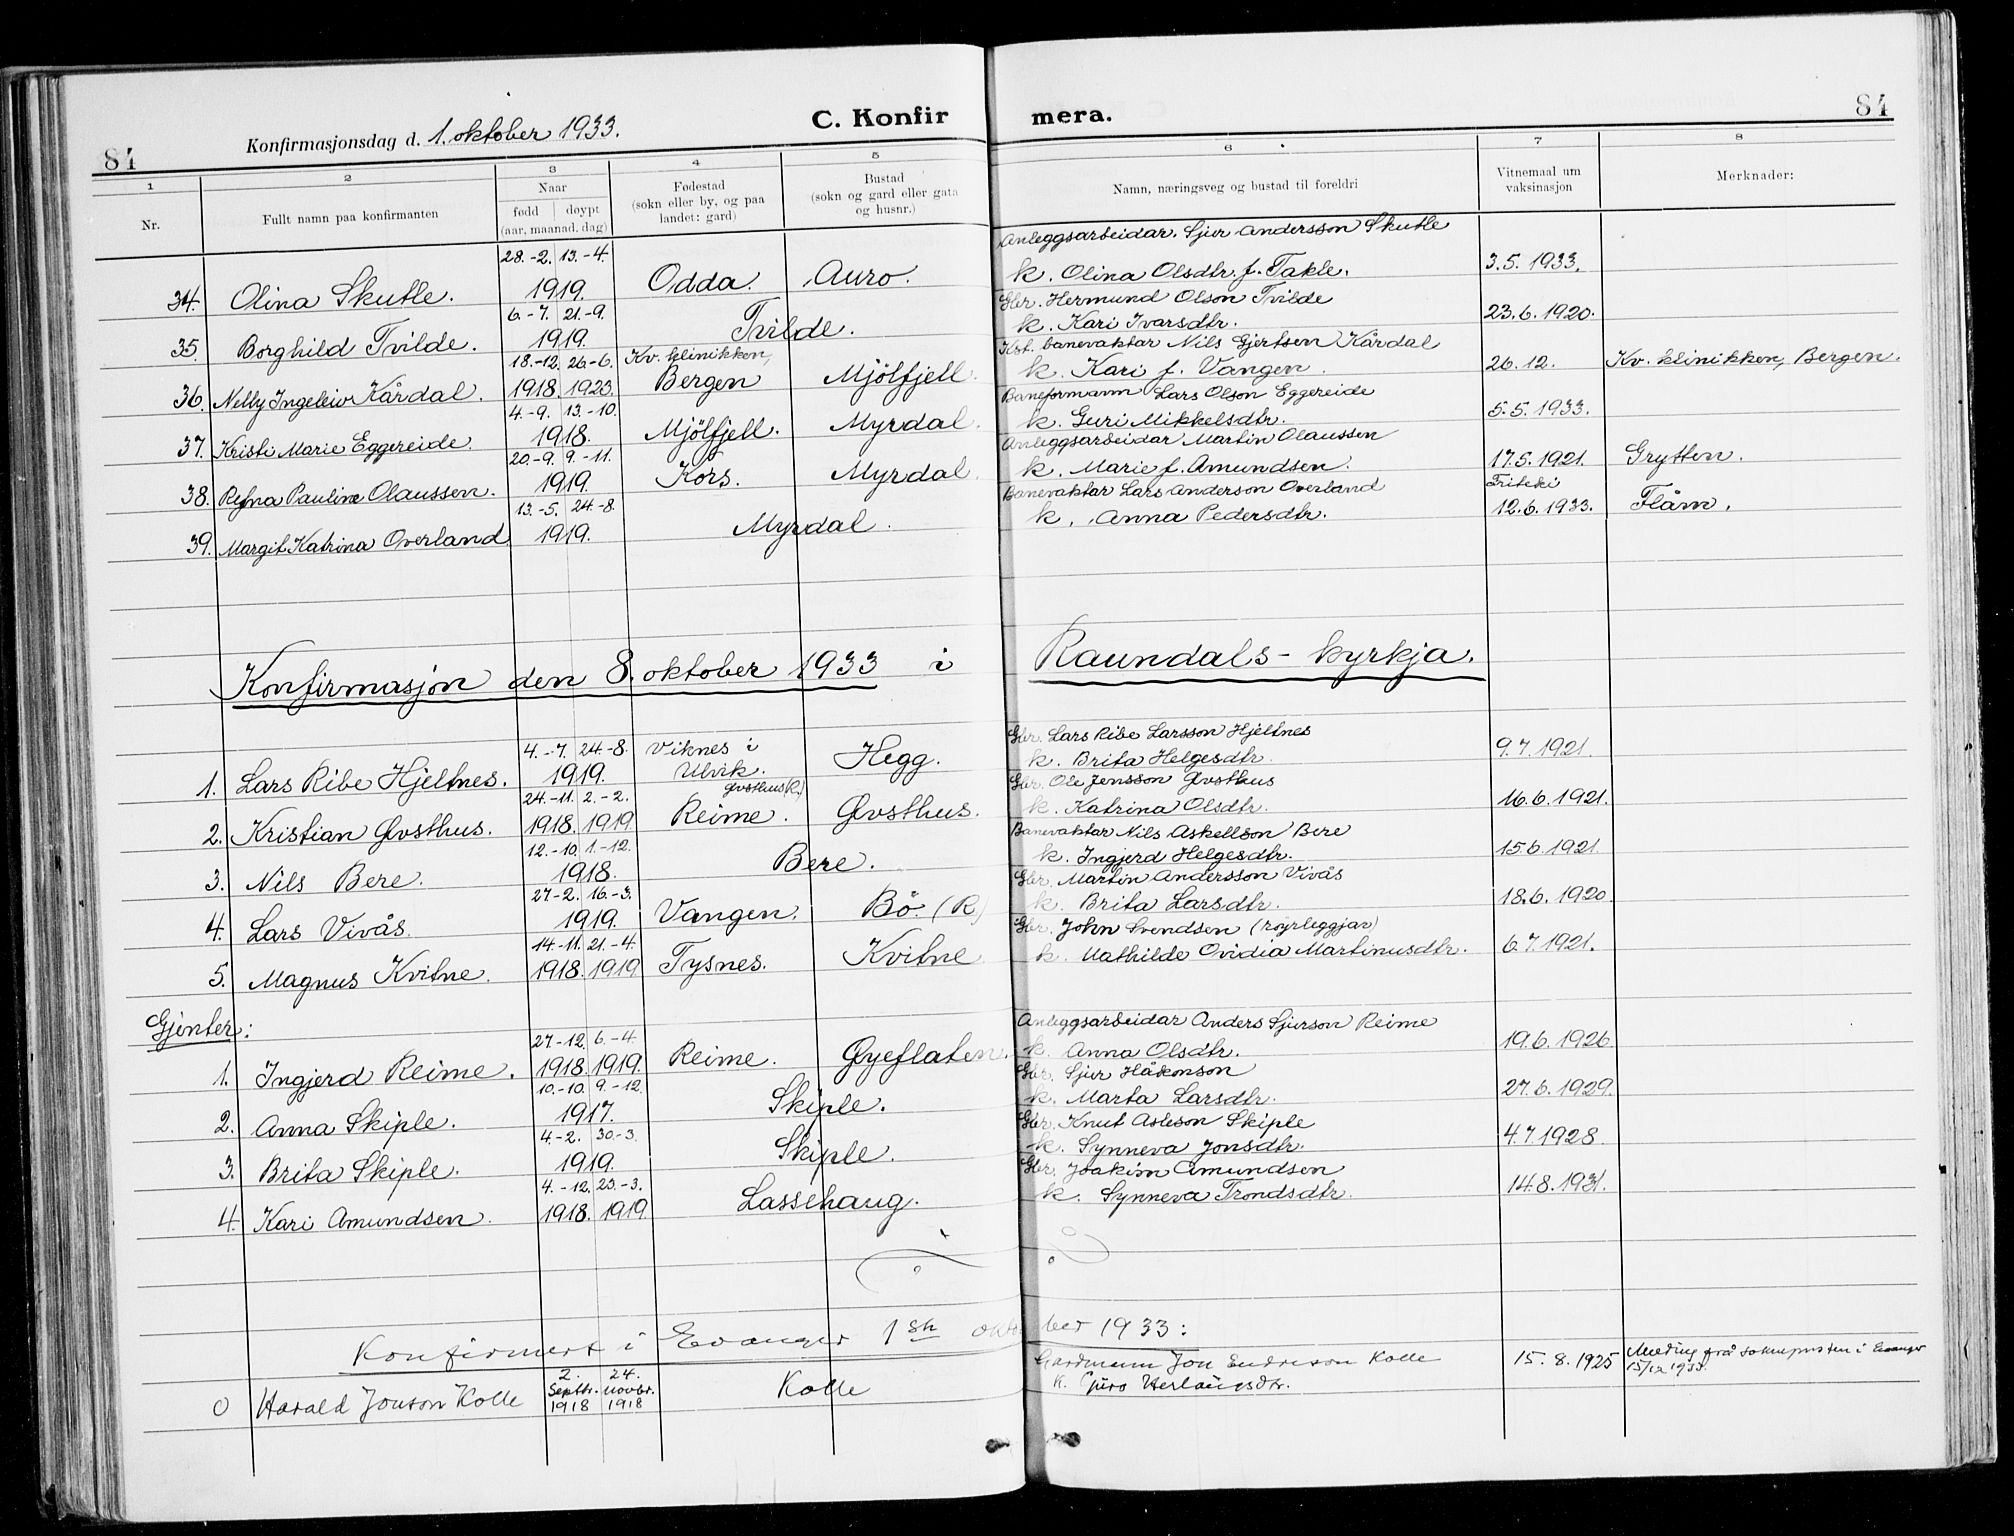 84
Konfirmasjonsdag d. 1. oktober 1933.
C. Konfir mera.
84
1 2 3 4 5 6 7 8
Nr.
Fullt namn paa konfirmanten
Naar
fødd døypt
(aar, maanad, dag)
Fødestad
(sokn eller by, og paa
landet: gard)
Bustad
(sokn og gard eller gata
og husnr.)
Namn, næringsveg og bustad til foreldri
Vitnemaal um
vaksinasjon
Merknader:
28.-2. 13.-4. Anleggsarbeidar. Sjur Andersson Skutle
34. Olina Skutle. 1919. Odda. Auro. k. Olina Olsdtr. f. Takle. 3.5.1933.
6.-7. 21.-9. Gbr. Hermund Olson Tvilde
35. Borghild Tvilde. 1919. Tvilde. k. Kari Ivarsdtr. 23.6.1920.
18.-12. 26.-6. Kv. klinikken, Kst. banevaktar Nils Gjertsen Kårdal
36. Nelly Ingeleiv Kårdal. 1918. 1923. Bergen Mjölfjell. k. Kari f. Vangen. 26.12. Kv. klinikken, Bergen.
4.-9. 13.-10. Baneformann Lars Olson Eggereide
37. Kristi Marie Eggereide. 1918. Mjölfjell. Myrdal. k. Guri Mikkelsdtr. 5.5.1933.
20.-9. 9.-11. Anleggsarbeidar Martin Olaussen
38. Regna Pauline Olaussen. 1919. Kors. Myrdal. k. Marie f. Amundsen. 17.5.1921. Grytten.
13.-5. 24.-8. Banevaktar Lars Anderson Overland
39. Margit Katrina Overland 1919. Myrdal. k. Anna Pedersdtr. 12.6.1933. Flåm.
Konfirmasjon den 8. oktober 1933 i Raundals-kyrkja.
4.-7. 24.-8. Viknes i Gbr. Lars Ribe Larsson Hjeltnes
1. Lars Ribe Hjeltnes. 1919. Ulvik. Hegg. k. Brita Helgesdtr. 9.7.1921.
24.-11. 2.-2. Øvsthus (R.) Gbr. Ole Jensson Øvsthus
2. Kristian Øvsthus. 1918. 1919. Reime. Øvsthus. k. Katrina Olsdtr. 16.6.1921.
12.-10. 1.-12. Banevaktar Nils Askellson Bere
3. Nils Bere. 1918. Bere. k. Ingjerd Helgesdtr. 15.6.1921.
27.-2. 16.-3. Gbr. Martin Andersson Vivås
4. Lars Vivås. 1919. Vangen. Bö. (R) k. Brita Larsdtr. 18.6.1920.
14.-11. 21.-4. Gbr. John Svendsen (röyrleggjar)
5. Magnus Kvitne. 1918. 1919 Tysnes. Kvitne k. Mathilde Ovidia Martinusdtr. 6.7.1921.
Gjenter:
27.-12. 6.-4. Anleggsarbeidar Anders Sjurson Reime
1. Ingjerd Reime. 1918. 1919. Reime. Øyeflaten. k. Anna Olsdtr. 19.6.1926
10.-10. 9.-12. Gbr. Sjur Håkonson
2. Anna Skiple. 1917. Skiple. k. Marta Larsdtr. 27.6.1929.
4.-2. 30.-3. Gbr. Knut Asleson Skiple
3. Brita Skiple. 1919. Skiple. k. Synneva Jonsdtr. 4.7.1928.
4.-12. 23.-3. Gbr. Joakim Amundsen
4. Kari Amundsen. 1918. 1919. Lassehaug. k. Synneva Trondsdtr. 14.8.1931.
Konfirmert i Evanger 1ste oktober 1933:
2. 24. Gardmann Jon Endreson Kolle 15.8.1925 Melding frå sokneprsten i Evanger
0 Harald Jonson Kolle Septbr. Novbr. Kolle k. Guro Herlaugsdtr. 15/12 1933.
1918 1918